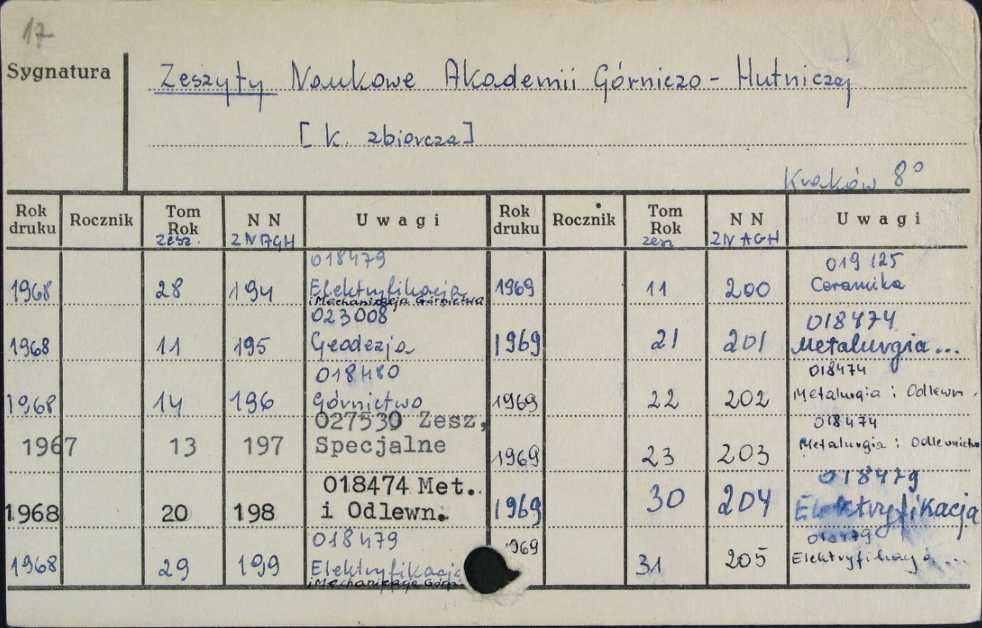 17
Sygnatura
Zeszyty Naukowe Akademii Górniczo - Hutniczej
[k. zbiorcza]
Kraków 8°
Rok druku Rocznik Tom Rok zesz. N N ZNAGH Uwagi Rok druku Rocznik Tom Rok zesz. N N ZNAGH Uwagi
018479
1968 28 194 Elektryfikacja
i Mechanizacja Górnictwa
023008
1968 11 195 Geodezja
018480
1968 14 196 Górnictwo
027530 Zesz,
1967 13 197 Specjalne
018474 Met.
1968 20 198 i Odlewn.
018479
1968 29 199 Elektryfikacja
i Mechanizacja Górn
019 125
1969 11 200 Ceramika
018474
1969 21 201 Metalurgia...
018474
1969 22 202 Metalurgia i Odlewn.
018474
1969 23 203 Metalurgia i Odlewnictwo
018479
1969 30 204 Elektryfikacja
018479
1969 31 205 Elektryfikacja...